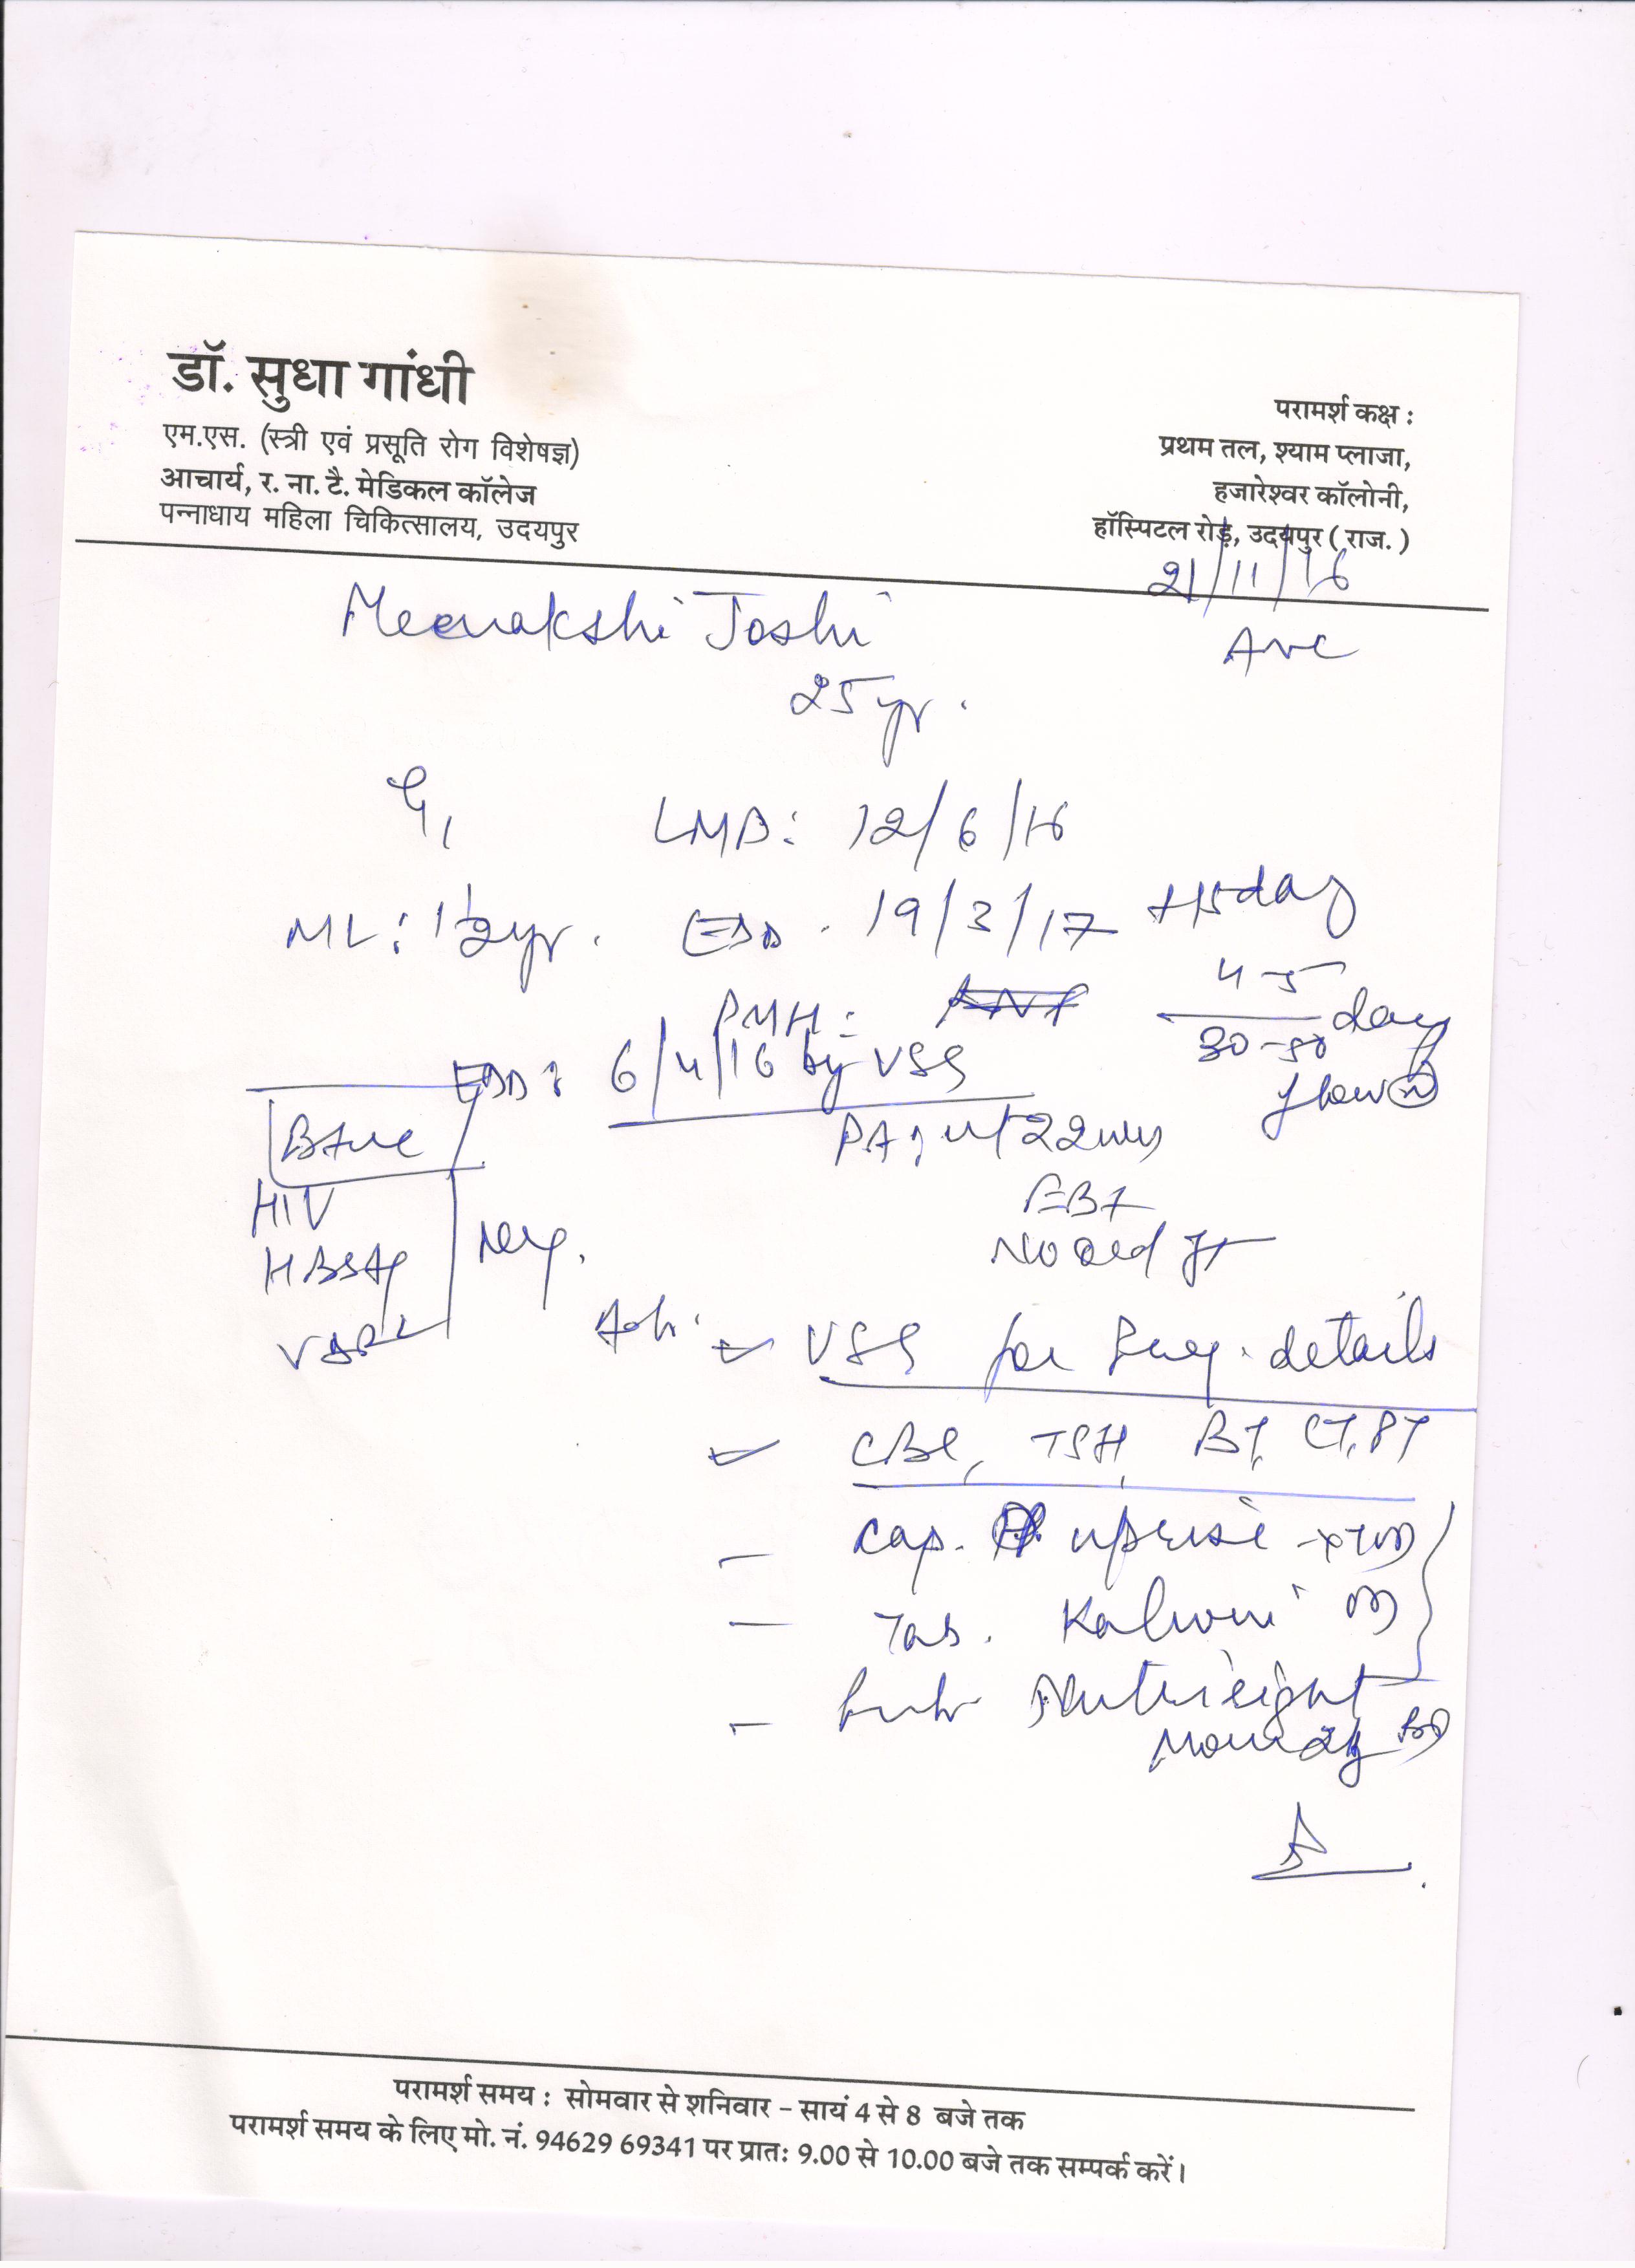 डॉ. सुधा गांधी
एम.एस. (स्त्री एवं प्रसूति रोग विशेषज्ञ)
आचार्य, र. ना. टै. मेडिकल कॉलेज
पन्नाधाय महिला चिकित्सालय, उदयपुर
परामर्श कक्ष :
प्रथम तल, श्याम प्लाजा,
हजारेश्वर कॉलोनी,
हॉस्पिटल रोड़, उदयपुर ( राज. )
21/11/16
Meenakshi Joshi
ANC
25 yr.
G1 LMP: 12/6/16
ML: 1½ yr. EDD. 19/3/17 +15 day
PMH: 4-5
30-50 days
flow (N)
EDD: 6/4/16 by USG
B+ve
PA: ut 22 wks
HIV
HBSAg Neg.
VDRL
EB+
No Oed
Adv: USG for Preg. details
CBC, TSH, BT, CT, PT
Cap. uprise
Tab.
परामर्श समय : सोमवार से शनिवार – सायं 4 से 8 बजे तक
परामर्श समय के लिए मो. नं. 94629 69341 पर प्रात: 9.00 से 10.00 बजे तक सम्पर्क करें।